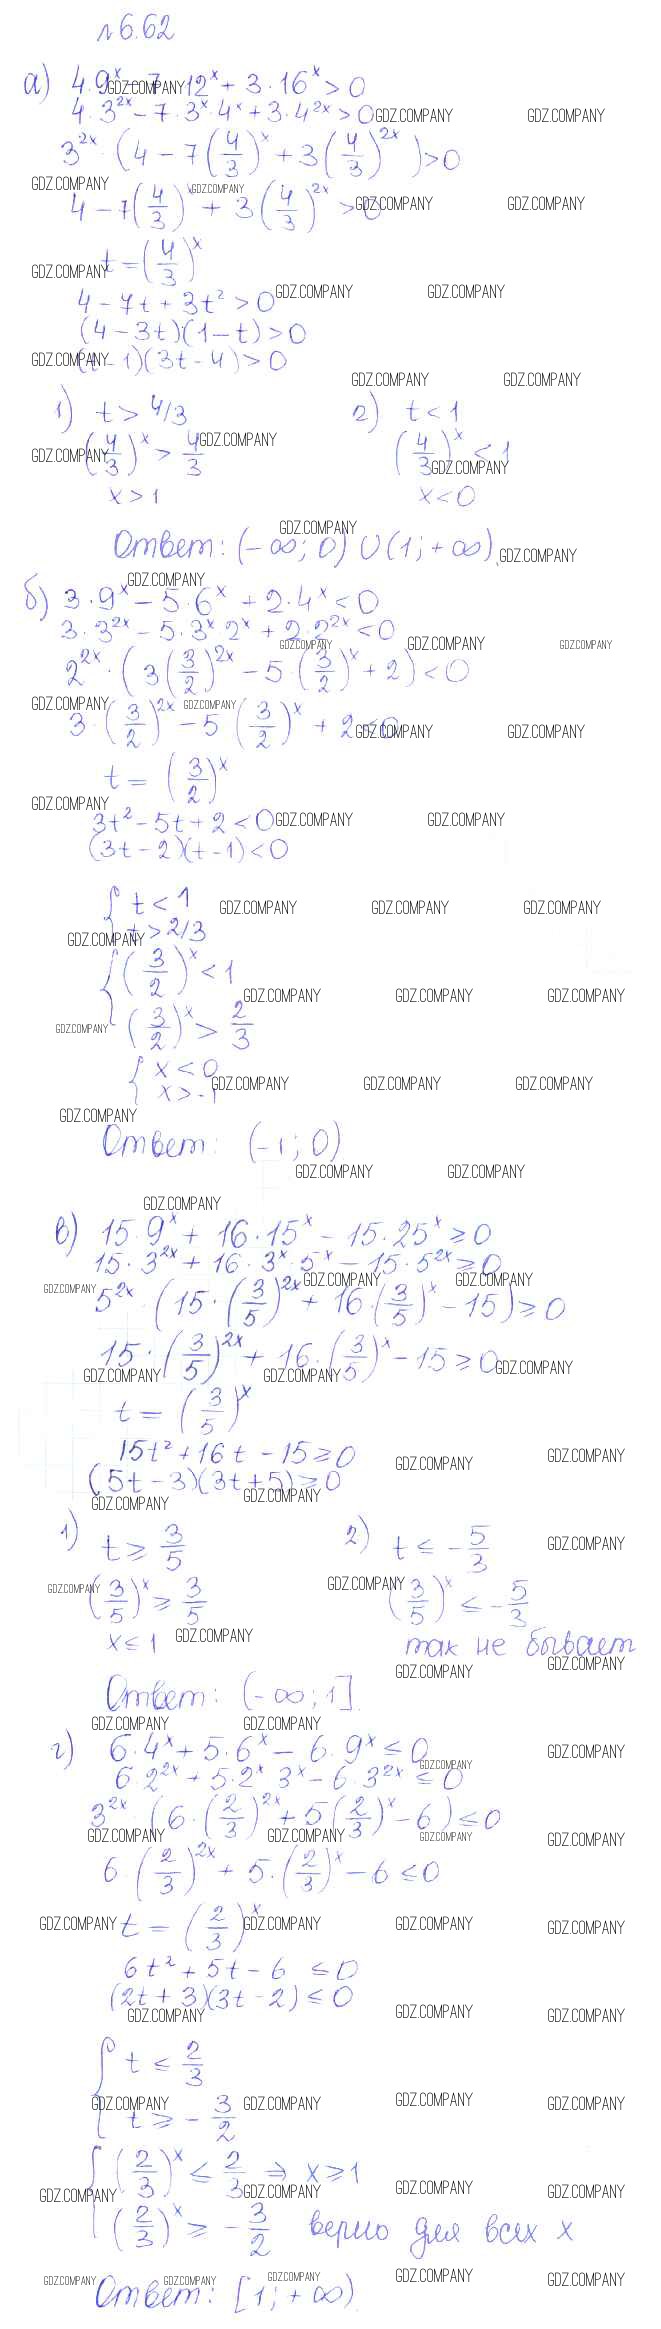 №6.62
а) 4·9^x − 7·12^x + 3·16^x > 0
4·3^{2x} − 7·3^x·4^x + 3·4^{2x} > 0
3^{2x}·(4 − 7(4/3)^x + 3(4/3)^{2x}) > 0
4 − 7(4/3)^x + 3(4/3)^{2x} > 0
t = (4/3)^x
4 − 7t + 3t² > 0
(4 − 3t)(1 − t) > 0
(t − 1)(3t − 4) > 0
1) t > 4/3 2) t < 1
(4/3)^x > 4/3 (4/3)^x < 1
x > 1 x < 0
Ответ: (−∞; 0) ∪ (1; +∞).
б) 3·9^x − 5·6^x + 2·4^x < 0
3·3^{2x} − 5·3^x·2^x + 2·2^{2x} < 0
2^{2x}·(3(3/2)^{2x} − 5·(3/2)^x + 2) < 0
3·(3/2)^{2x} − 5(3/2)^x + 2 < 0
t = (3/2)^x
3t² − 5t + 2 < 0
(3t − 2)(t − 1) < 0
{ t < 1
t > 2/3
{ (3/2)^x < 1
(3/2)^x > 2/3
{ x < 0
x > −1
Ответ: (−1; 0)
в) 15·9^x + 16·15^x − 15·25^x ≥ 0
15·3^{2x} + 16·3^x·5^x − 15·5^{2x} ≥ 0
5^{2x}·(15·(3/5)^{2x} + 16·(3/5)^x − 15) ≥ 0
15·(3/5)^{2x} + 16·(3/5)^x − 15 ≥ 0
t = (3/5)^x
15t² + 16t − 15 ≥ 0
(5t − 3)(3t + 5) ≥ 0
1) t ≥ 3/5 2) t ≤ −5/3
(3/5)^x ≥ 3/5 (3/5)^x ≤ −5/3
x ≤ 1 так не бывает
Ответ: (−∞; 1].
г) 6·4^x + 5·6^x − 6·9^x ≤ 0
6·2^{2x} + 5·2^x 3^x − 6·3^{2x} ≤ 0
3^{2x}·(6·(2/3)^{2x} + 5(2/3)^x − 6) ≤ 0
6·(2/3)^{2x} + 5·(2/3)^x − 6 ≤ 0
t = (2/3)^x
6t² + 5t − 6 ≤ 0
(2t + 3)(3t − 2) ≤ 0
{ t ≤ 2/3
t ≥ −3/2
{ (2/3)^x ≤ 2/3 ⇒ x ≥ 1
(2/3)^x ≥ −3/2 верно для всех x
Ответ: [1; +∞).
GDZ.COMPANY